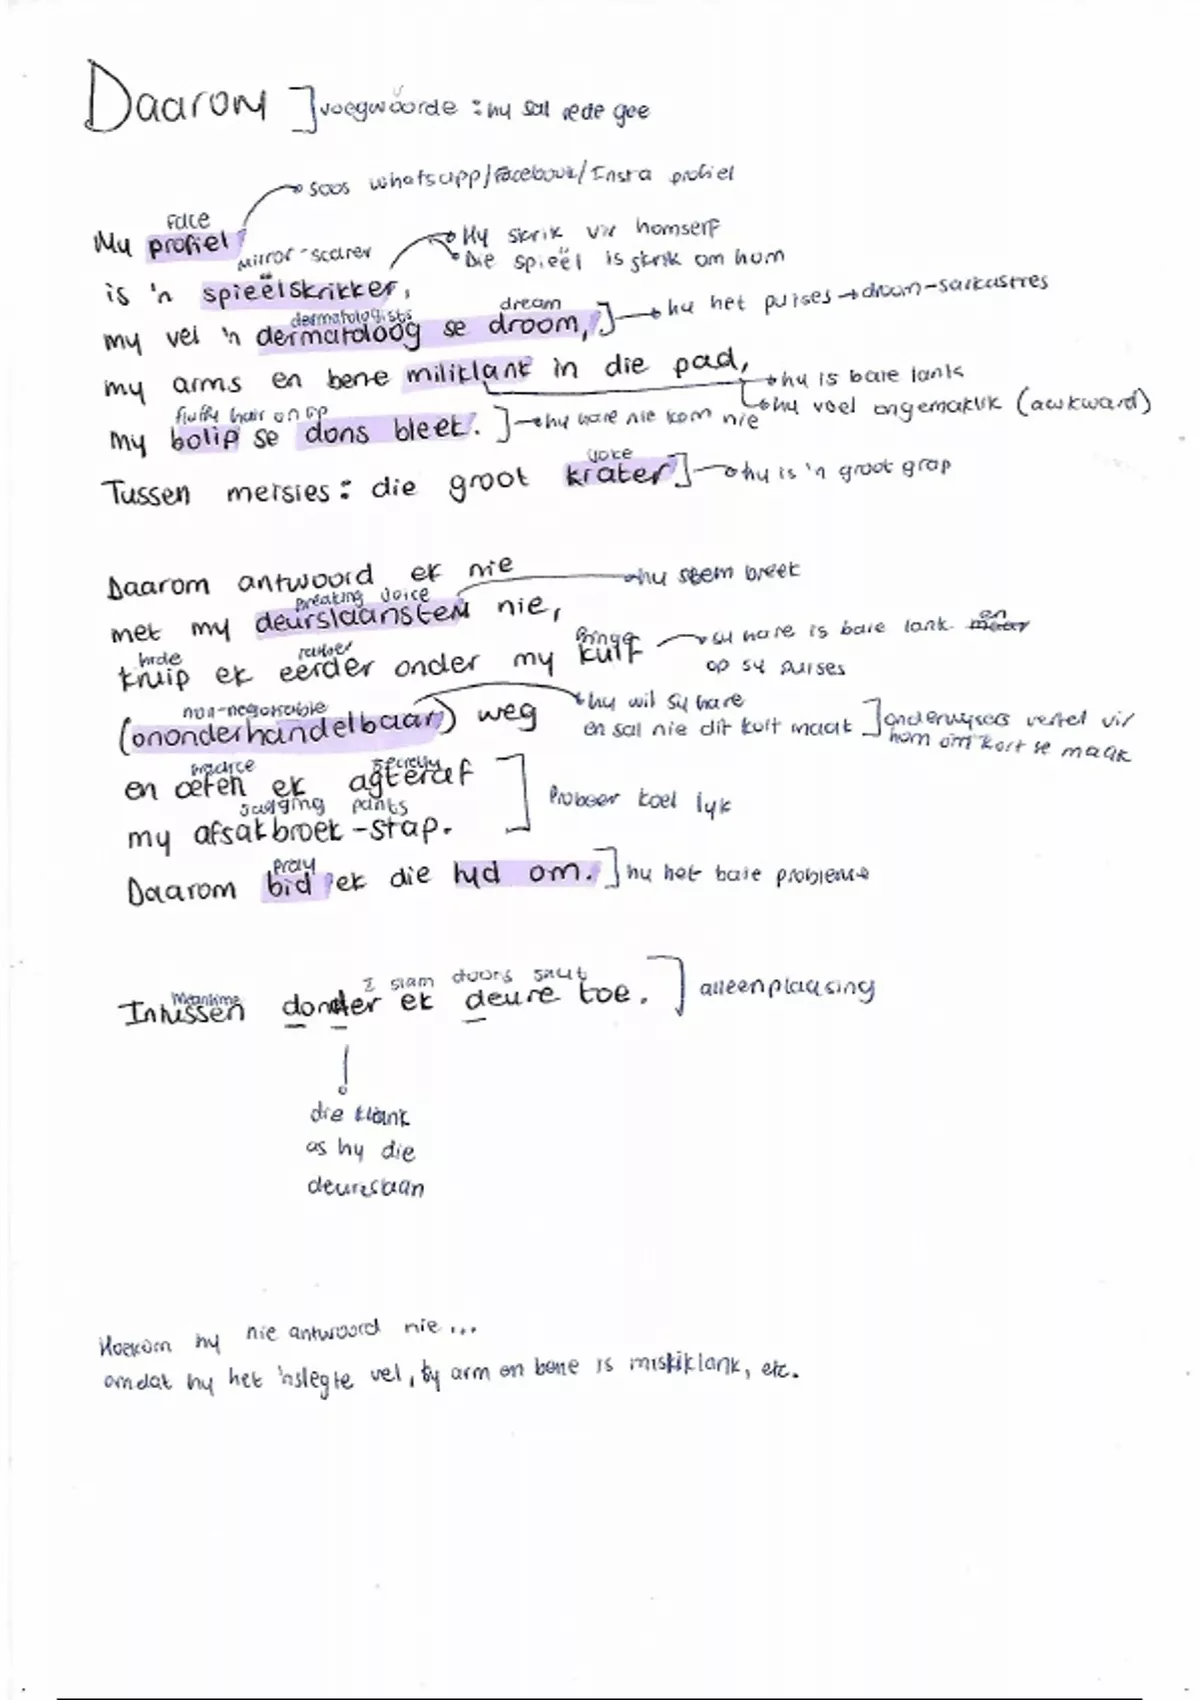 Daarom ] voegwoorde : hy sal rede gee
soos whatsapp/Facebook/Insta profiel
Face
My profiel
Hy skrik vir homself
mirror-scarer
Die spieël is skrik om hom
is 'n spieëlskrikker,
dermatologists dream
hy het puises → droom-sarkastres
my vel 'n dermatoloog se droom,
my arms en bene miliklank in die pad,
hy is baie lank
hy voel ongemaklik (awkward)
fluffy hair on lip
my bolip se dons bleek. ] hy hare nie kom nie
joke
Tussen meisies: die groot krater ] hy is 'n groot grap
Daarom antwoord ek nie
hy stem breek
breaking voice
met my deurslaanstem nie,
hide rather fringe
sy hare is baie lank en
kruip ek eerder onder my kuif
op sy puises
non-negotiable
hy wil sy hare
(ononderhandelbaar) weg
en sal nie dit kort maak ] onderwysers vertel vir
hom om kort te maak
practice secretly
en oefen ek agteraf
sagging pants
Probeer koel lyk
my afsakbroek-stap.
pray
Daarom bid ek die tyd om. ] hy het baie probleme
Meantime I slam doors shut
Intussen donder ek deure toe. ] alleenplaasing
die klank
as hy die
deurslaan
Hoekom hy nie antwoord nie...
omdat hy het 'n slegte vel, sy arm en bene is miskiklank, etc.